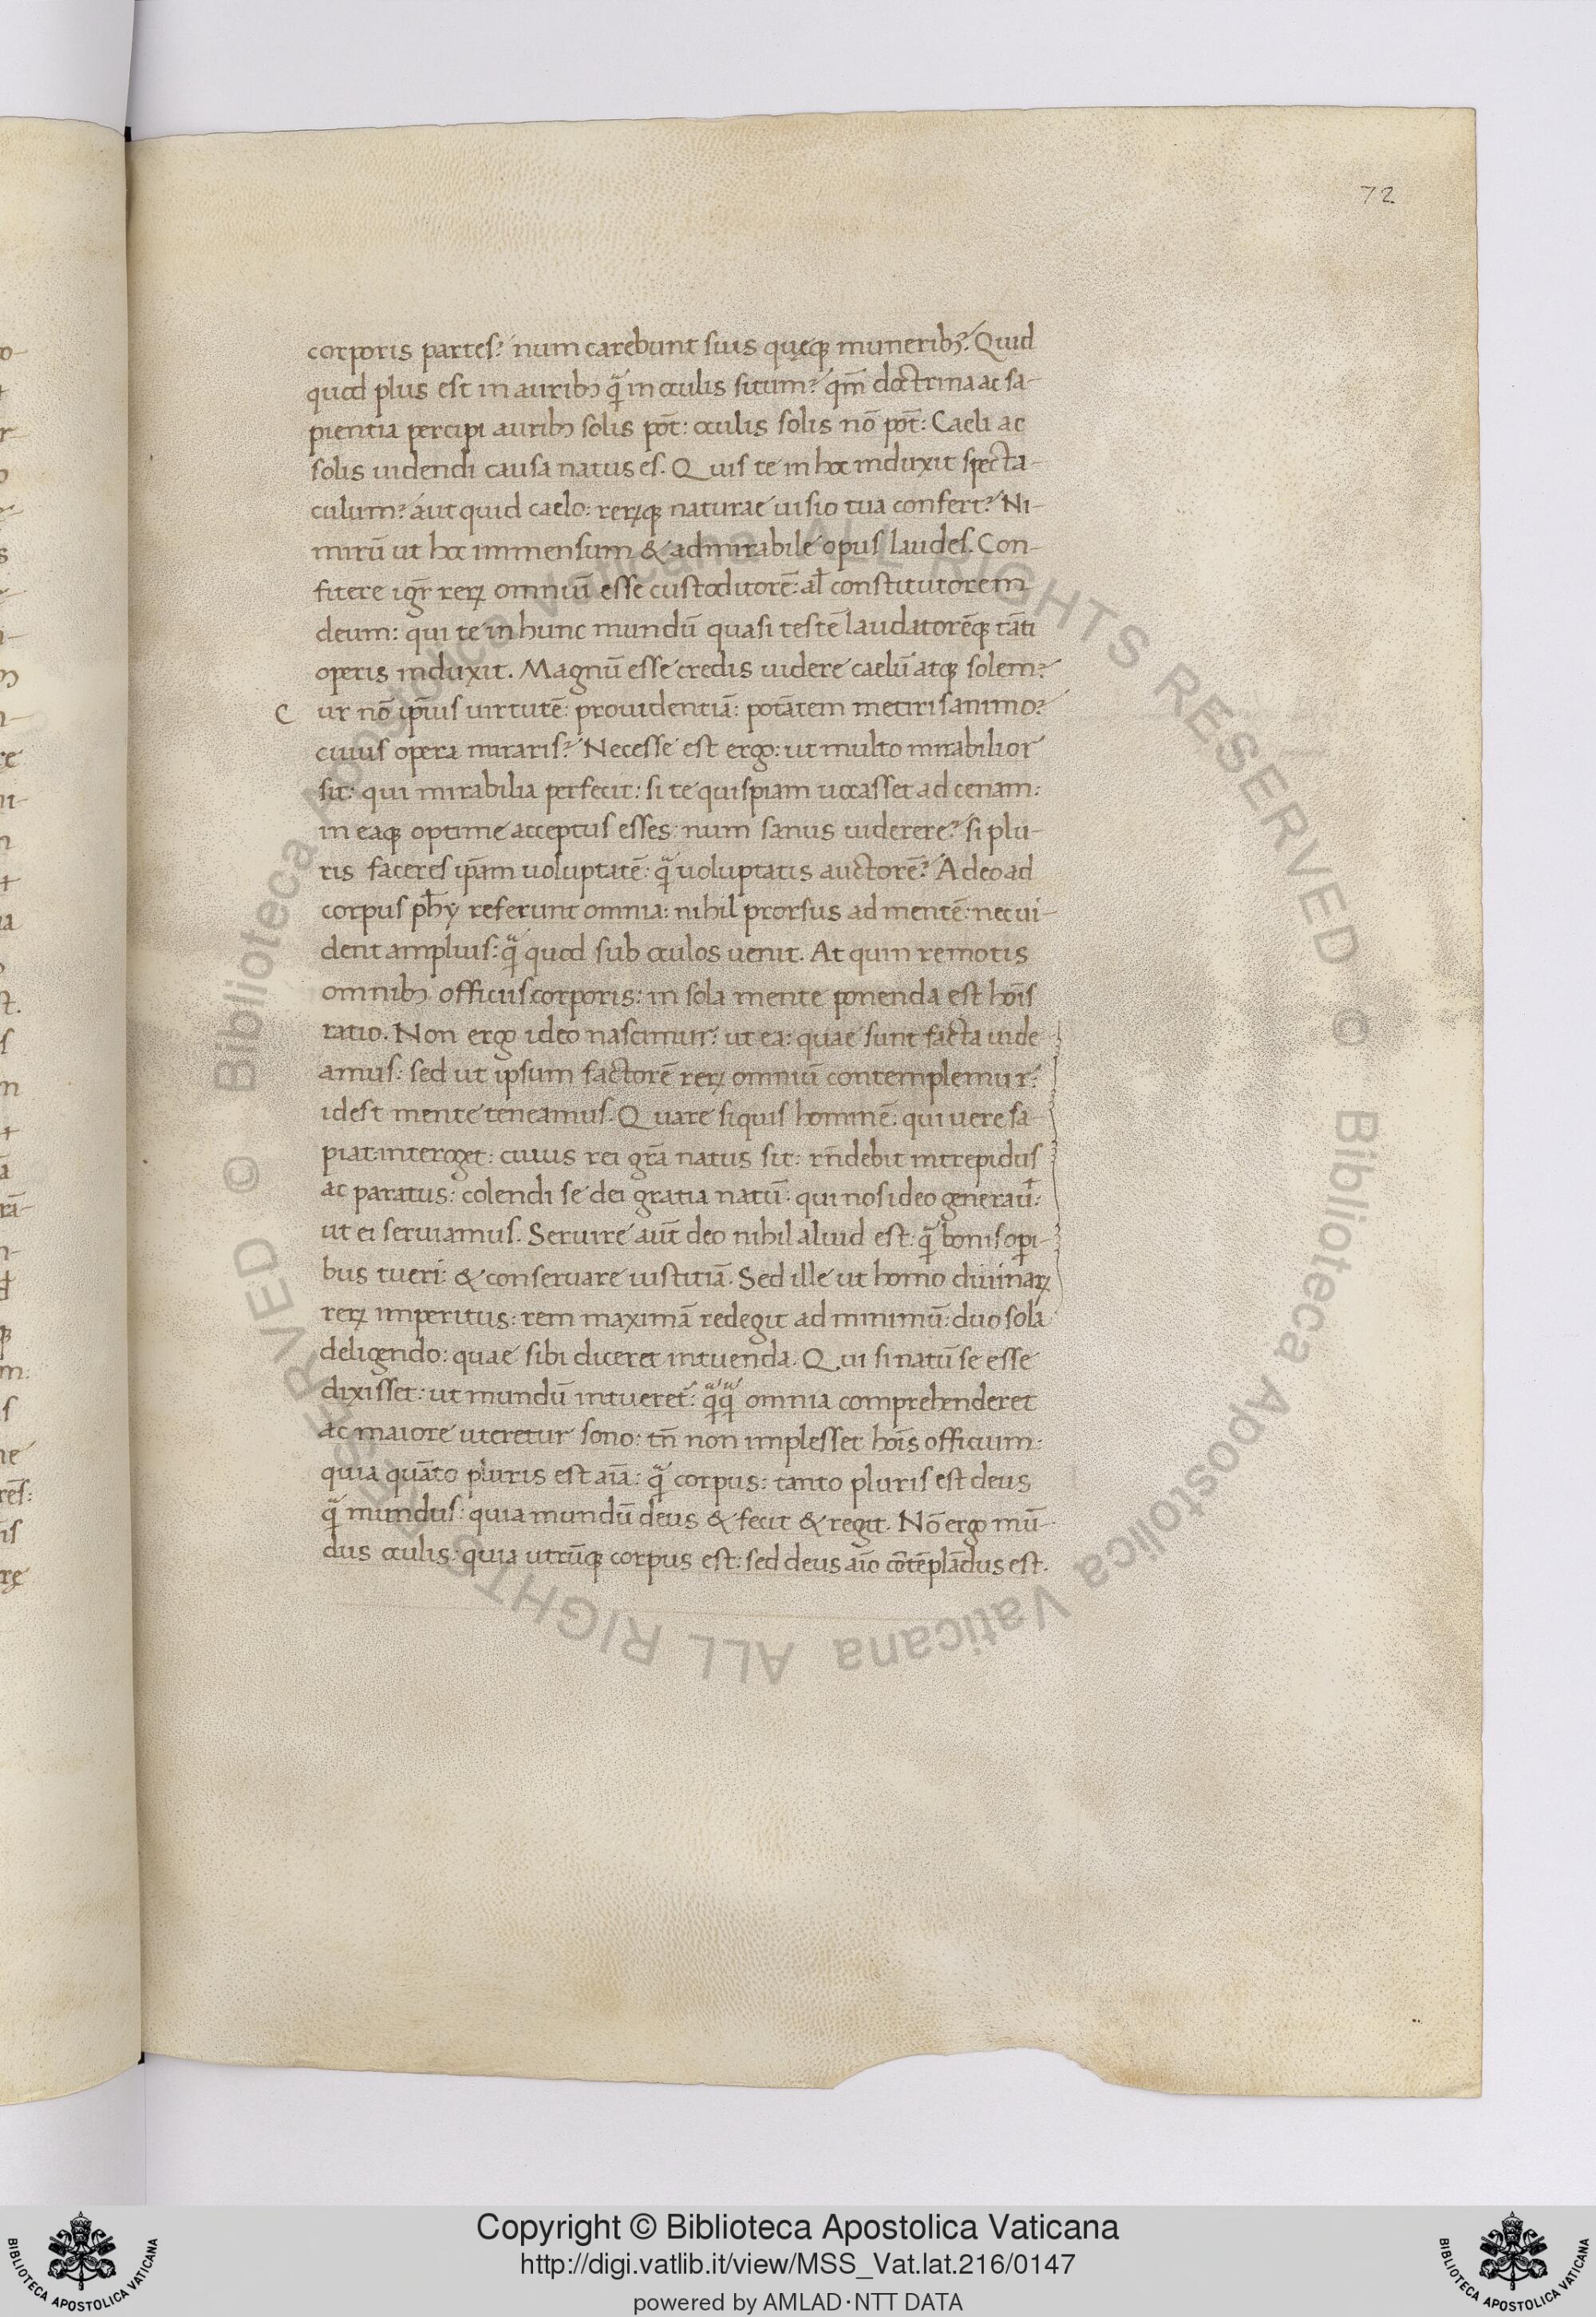 72
corporis partes? num carebunt suis quęq; munerib;? Quid
quod plus est in aurib; q̄ in oculis situm? qm̄ doctrina ac sa-
pientia percipi aurib; solis pōt: oculis solis nō pōt: Caeli ac
solis uidendi causa natus es. Quis te in hoc induxit specta-
culum? aut quid caelo: rerꝝq; naturae uisio tua confert? Ni-
mirū ut hoc immensum & admirabile opus laudes. Con-
fitere igr̄ rerꝝ omniū esse custoditorē: al̄ constitutorem
deum: qui te in hunc mundū quasi testē laudatorēq; tāti
operis induxit. Magnū esse credis uidere caelū atq; solem?
C ur nō ip̄ius uirtutē: prouidentiā: potātem metiris animo?
cuius opera miraris? Necesse est ergo: ut multo mirabilior
sit: qui mirabilia perfecit: si te quispiam uocasset ad cenam:
in eaq; optime acceptus esses: num sanus uiderere? si plu-
ris faceres ip̄am uoluptatē: q̄ uoluptatis auctorē? Adeo ad
corpus ph̄y referunt omnia: nihil prorsus ad mentē: nec ui-
dent amplius: q̄ quod sub oculos uenit. At quin remotis
omnib; officiis corporis: in sola mente ponenda est hoīs
ratio. Non ergo ideo nascimur: ut ea: quae sunt facta uide
amus: sed ut ipsum factorē rerꝝ omniū contemplemur:
idest mente teneamus. Quare siquis hominē: qui uere sa-
piat: interoget: cuius rei grā natus sit: rn̄debit intrepidus
ac paratus: colendi se dei gratia natū: qui nos ideo generau̅:
ut ei seruiamus. Seruire aut̄ deo nihil aliud est: q̄ bonis opi-
bus tueri: & conseruare iustitiā. Sed ille ut homo diuinaꝝ
rerꝝ imperitus: rem maximā redegit ad minimū: duo sola
deligendo: quae sibi diceret intuenda. Qui si natū se esse
dixisset: ut mundū intueret̄: q̄q̄ omnia comprehenderet
ac maiore uteretur sono: tn̄ non implesset hoīs officium:
quia quāto pluris est aīa: q̄ corpus: tanto pluris est deus
q̄ mundus: quia mundū deus & fecit & regit. Nō ergo mū-
dus oculis: quia utrūq; corpus est: sed deus aīo cōtēplādus est.
© Biblioteca Apostolica Vaticana ALL RIGHTS RESERVED
© Biblioteca Apostolica Vaticana ALL RIGHTS RESERVED
Copyright © Biblioteca Apostolica Vaticana
http://digi.vatlib.it/view/MSS_Vat.lat.216/0147
powered by AMLAD·NTT DATA
BIBLIOTECA APOSTOLICA VATICANA
BIBLIOTECA APOSTOLICA VATICANA